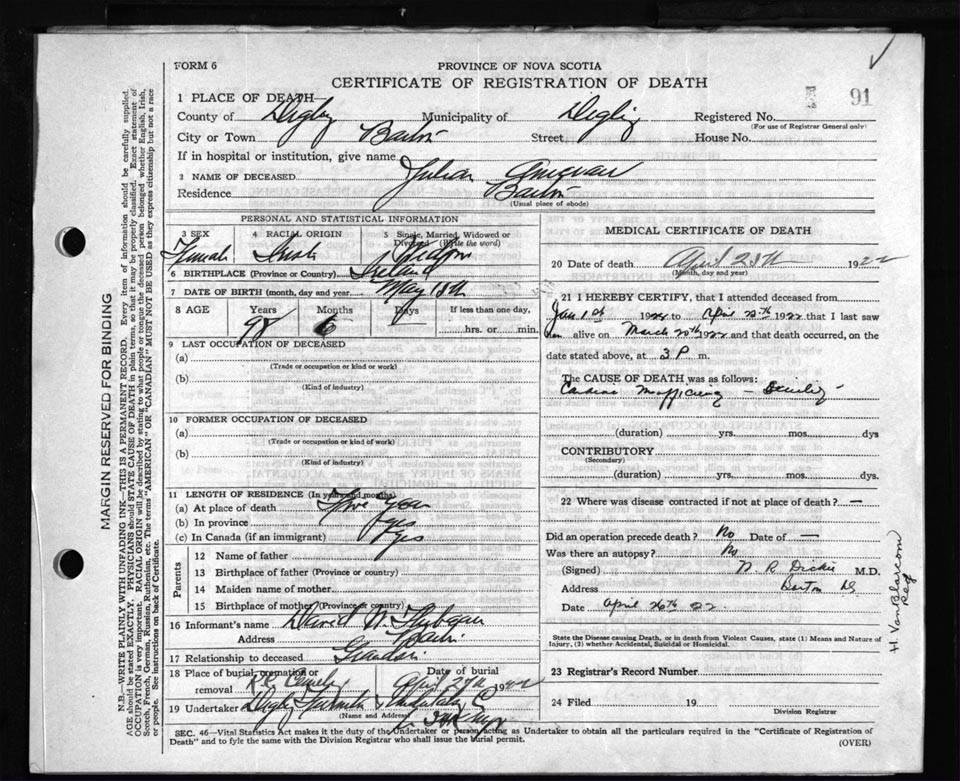 FORM 6
PROVINCE OF NOVA SCOTIA
CERTIFICATE OF REGISTRATION OF DEATH
91
1 PLACE OF DEATH—
County of Digby Municipality of Digby Registered No.
(For use of Registrar General only)
City or Town Barton Street House No.
If in hospital or institution, give name
2 NAME OF DECEASED
Residence Barton
(Usual place of abode)
PERSONAL AND STATISTICAL INFORMATION
3 SEX 4 RACIAL ORIGIN 5 Single, Married, Widowed or Divorced (Write the word)
Female Irish Widow
6 BIRTHPLACE (Province or Country) Ireland
7 DATE OF BIRTH (month, day and year) May 18th
8 AGE Years Months Days If less than one day,
98 hrs. or min.
9 LAST OCCUPATION OF DECEASED
(a)
(Trade or occupation or kind or work)
(b)
(Kind of industry)
10 FORMER OCCUPATION OF DECEASED
(a)
(Trade or occupation or kind of work)
(b)
(Kind of industry)
11 LENGTH OF RESIDENCE (In years and months)
(a) At place of death
(b) In province yes
(c) In Canada (if an immigrant) yes
Parents
12 Name of father
13 Birthplace of father (Province or country)
14 Maiden name of mother
15 Birthplace of mother (Province or country)
16 Informant's name David N
Address Barton
17 Relationship to deceased Grandson
18 Place of burial, cremation or removal Date of burial
April 27th 1922
19 Undertaker Digby Furniture & Undertaking Co
(Name and Address)
MEDICAL CERTIFICATE OF DEATH
20 Date of death April 25th 1922
(Month, day and year)
21 I HEREBY CERTIFY, that I attended deceased from
Jan 1st 1922 to April 25th 1922 that I last saw
her alive on March 20th 1922 and that death occurred, on the
date stated above, at 3 P m.
The CAUSE OF DEATH was as follows:
Cardiac Senility
(duration) yrs. mos. dys
CONTRIBUTORY
(Secondary)
(duration) yrs. mos. dys
22 Where was disease contracted if not at place of death? —
Did an operation precede death? No Date of —
Was there an autopsy? No
(Signed) N. R. Dickie M.D.
Address
Date April 26th 22
State the Disease causing Death, or in death from Violent Causes, state (1) Means and Nature of
Injury, (2) whether Accidental, Suicidal or Homicidal.
23 Registrar's Record Number
24 Filed 19
Division Registrar
SEC. 46—Vital Statistics Act makes it the duty of the Undertaker or person acting as Undertaker to obtain all the particulars required in the "Certificate of Registration of
Death" and to fyle the same with the Division Registrar who shall issue the burial permit. (OVER)
MARGIN RESERVED FOR BINDING
N.B.—WRITE PLAINLY WITH UNFADING INK—THIS IS A PERMANENT RECORD. Every item of information should be carefully supplied.
AGE should be stated EXACTLY. PHYSICIANS should STATE CAUSE OF DEATH in plain terms, so that it may be properly classified. Exact statement of
OCCUPATION is very important. RACIAL ORIGIN will be described by stating to what people or tongue the deceased person belonged, whether English, Irish,
Scotch, French, German, Russian, Ruthenian, etc. The terms "AMERICAN" or "CANADIAN" MUST NOT BE USED as they express citizenship but not a race
or people. See instructions on back of Certificate.
H. VanBlarcom
Reg